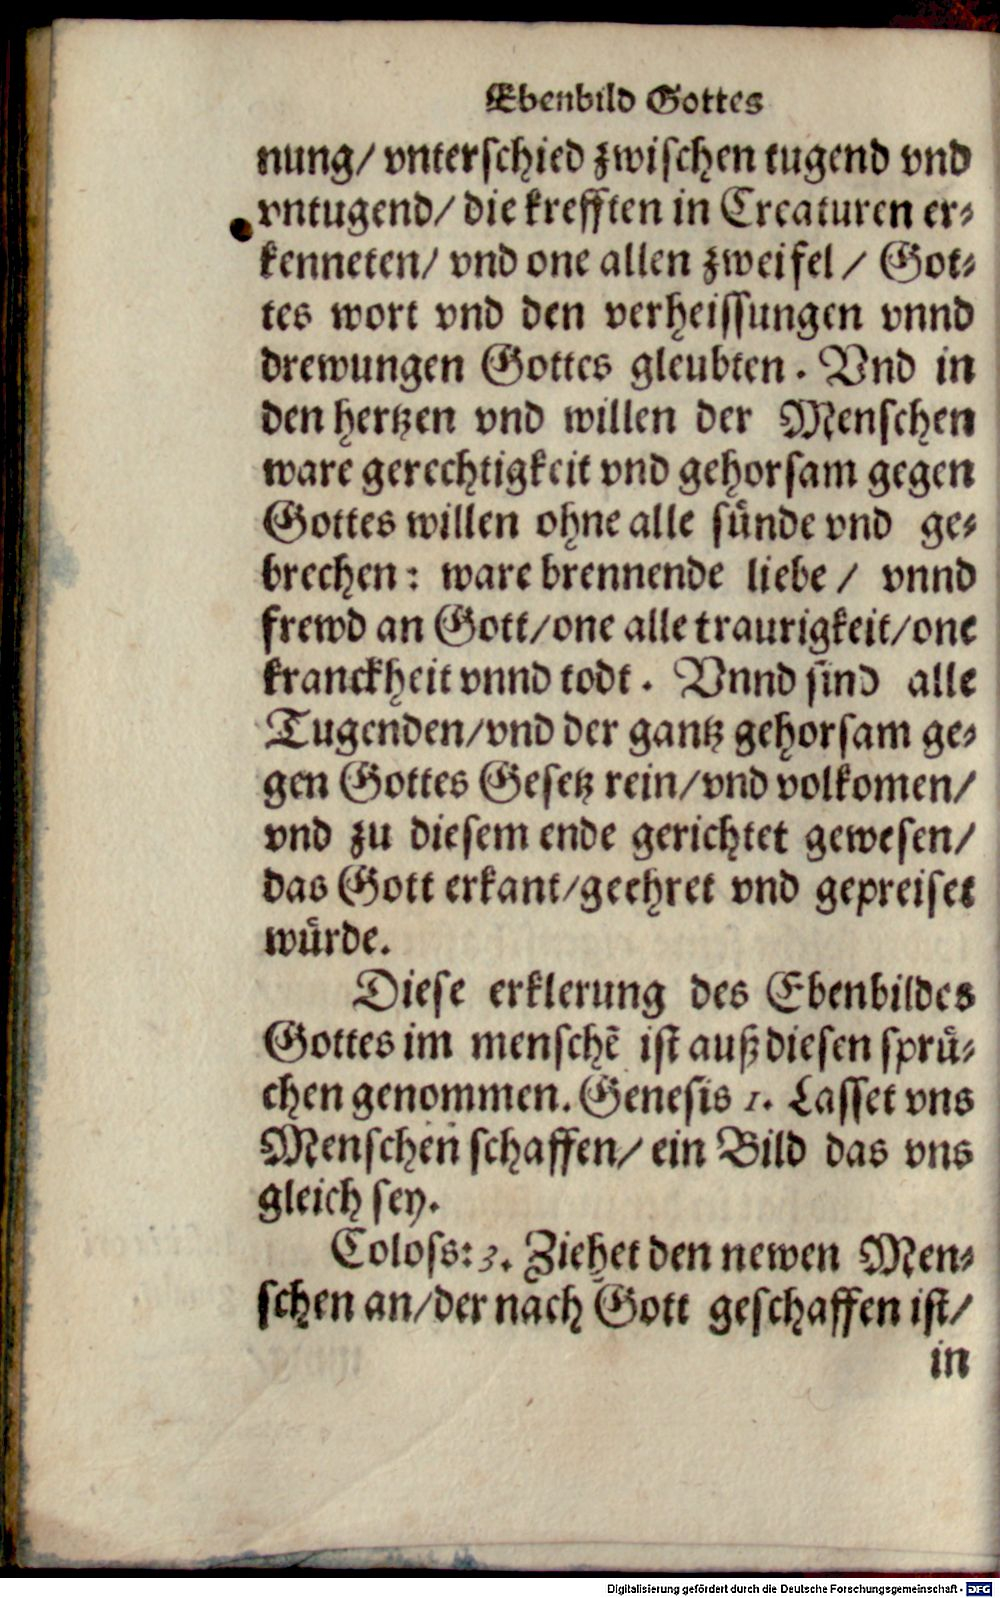 Ebenbild Gottes
nung/ vnterschied zwischen tugend vnd
vntugend/ die krefften in Creaturen er⸗
kenneten/ vnd one allen zweifel / Got⸗
tes wort vnd den verheissungen vnnd
drewungen Gottes gleubten. Vnd in
den hertzen vnd willen der Menschen
ware gerechtigkeit vnd gehorsam gegen
Gottes willen ohne alle sünde vnd ge⸗
brechen: ware brennende liebe / vnnd
frewd an Gott/one alle traurigkeit/one
kranckheit vnnd todt. Vnnd sind alle
Tugenden/vnd der gantz gehorsam ge⸗
gen Gottes Gesetz rein/vnd volkomen/
vnd zu diesem ende gerichtet gewesen/
das Gott erkant/geehret vnd gepreiset
würde.
Diese erklerung des Ebenbildes
Gottes im menschẽ ist auß diesen sprü⸗
chen genommen. Genesis 1. Lasset vns
Menschen schaffen/ ein Bild das vns
gleich sey.
Coloss: 3. Ziehet den newen Men⸗
schen an/der nach Gott geschaffen ist/
in
Digitalisierung gefördert durch die Deutsche Forschungsgemeinschaft - DFG